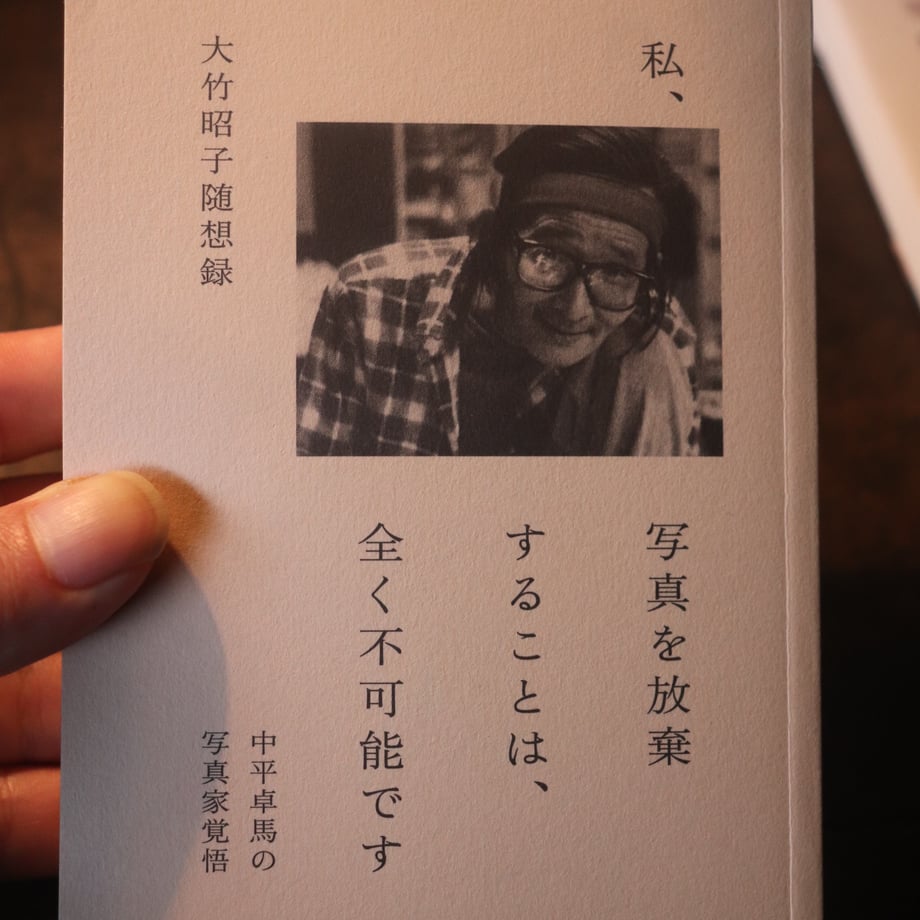 私、
写真を放棄
することは、
全く不可能です
中平卓馬の
写真家覚悟
大竹昭子随想録